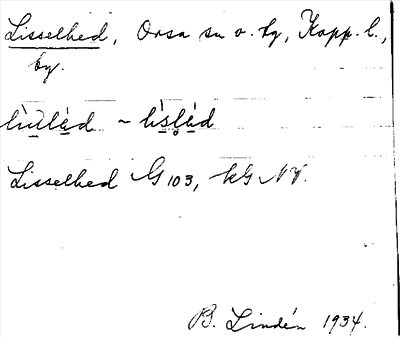 Lisselhed, Orsa sn o. tg, Kopp. l.,
by.
lìslèd ~ lìslèd
Lisselhed G 103, kG NV.
B. Lindén 1934.